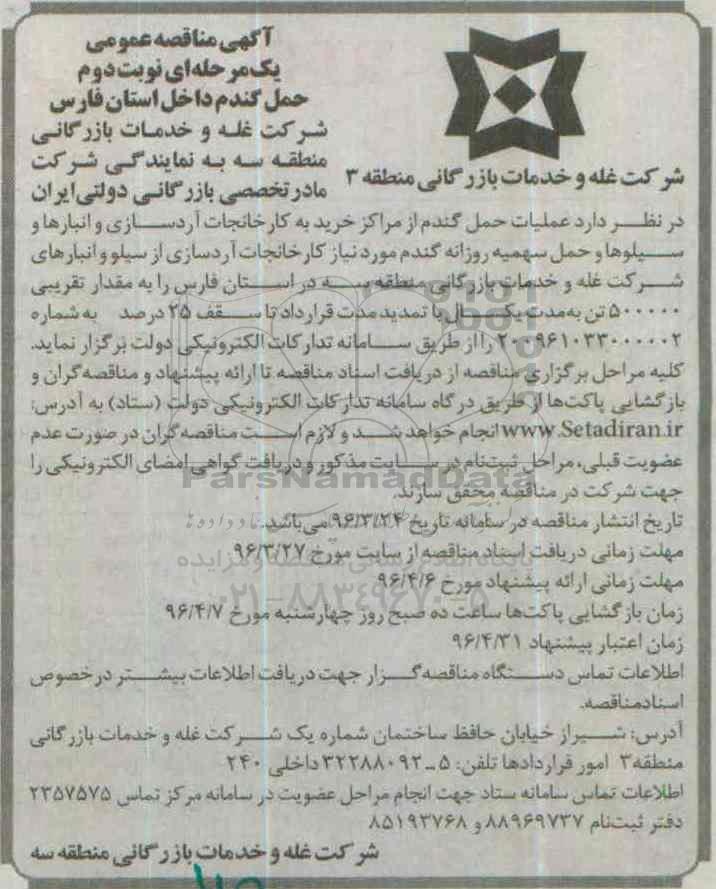 آگهی مناقصه عمومی
یک‌مرحله‌ای نوبت دوم
حمل گندم داخل استان فارس
شرکت غله و خدمات بازرگانی
منطقه سه به نمایندگی شرکت
مادر تخصصی بازرگانی دولتی ایران
شرکت غله و خدمات بازرگانی منطقه ۳
در نظر دارد عملیات حمل گندم از مراکز خرید به کارخانجات آردسازی و انبارها و
سیلوها و حمل سهمیه روزانه گندم مورد نیاز کارخانجات آردسازی از سیلو و انبارهای
شرکت غله و خدمات بازرگانی منطقه سه در استان فارس را به مقدار تقریبی
۵۰۰۰۰۰ تن به‌مدت یکسال با تمدید مدت قرارداد تا سقف ۲۵ درصد به شماره
۲۰۰۹۶۱۰۳۳۰۰۰۰۰۲ را از طریق سامانه تدارکات الکترونیکی دولت برگزار نماید.
کلیه مراحل برگزاری مناقصه از دریافت اسناد مناقصه تا ارائه پیشنهاد و مناقصه‌گران و
بازگشایی پاکت‌ها از طریق درگاه سامانه تدارکات الکترونیکی دولت (ستاد) به آدرس:
www.Setadiran.ir انجام خواهد شد و لازم است مناقصه‌گران در صورت عدم
عضویت قبلی، مراحل ثبت‌نام در سایت مذکور و دریافت گواهی امضای الکترونیکی را
جهت شرکت در مناقصه محقق سازند.
تاریخ انتشار مناقصه در سامانه تاریخ ۹۶/۳/۲۴ می‌باشد.
مهلت زمانی دریافت اسناد مناقصه از سایت مورخ ۹۶/۳/۲۷
مهلت زمانی ارائه پیشنهاد مورخ ۹۶/۴/۶
زمان بازگشایی پاکت‌ها ساعت ده صبح روز چهارشنبه مورخ ۹۶/۴/۷
زمان اعتبار پیشنهاد ۹۶/۴/۳۱
اطلاعات تماس دستگاه مناقصه‌گزار جهت دریافت اطلاعات بیشتر در خصوص
اسناد مناقصه.
آدرس: شیراز خیابان حافظ ساختمان شماره یک شرکت غله و خدمات بازرگانی
منطقه ۳ امور قراردادها تلفن: ۵ـ۳۲۲۸۸۰۹۲ داخلی ۲۴۰
اطلاعات تماس سامانه ستاد جهت انجام مراحل عضویت در سامانه مرکز تماس ۲۳۵۷۵۷۵
دفتر ثبت‌نام ۸۸۹۶۹۷۳۷ و ۸۵۱۹۳۷۶۸
شرکت غله و خدمات بازرگانی منطقه سه
ParsNamadData
پایگاه اطلاع رسانی مناقصه و مزایده
۰۲۱-۸۸۳۴۹۶۷۰-۵